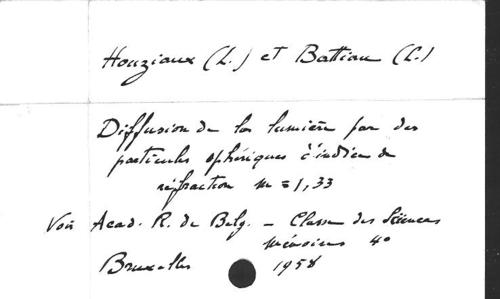 Houziaux (L.) et Battiau (L.)
Diffusion de la lumière par des
particules sphériques d'indice de
réfraction m = 1,33
Voir Acad. R. de Belg. - Classe des Sciences
Mémoires 4°
Bruxelles 1958